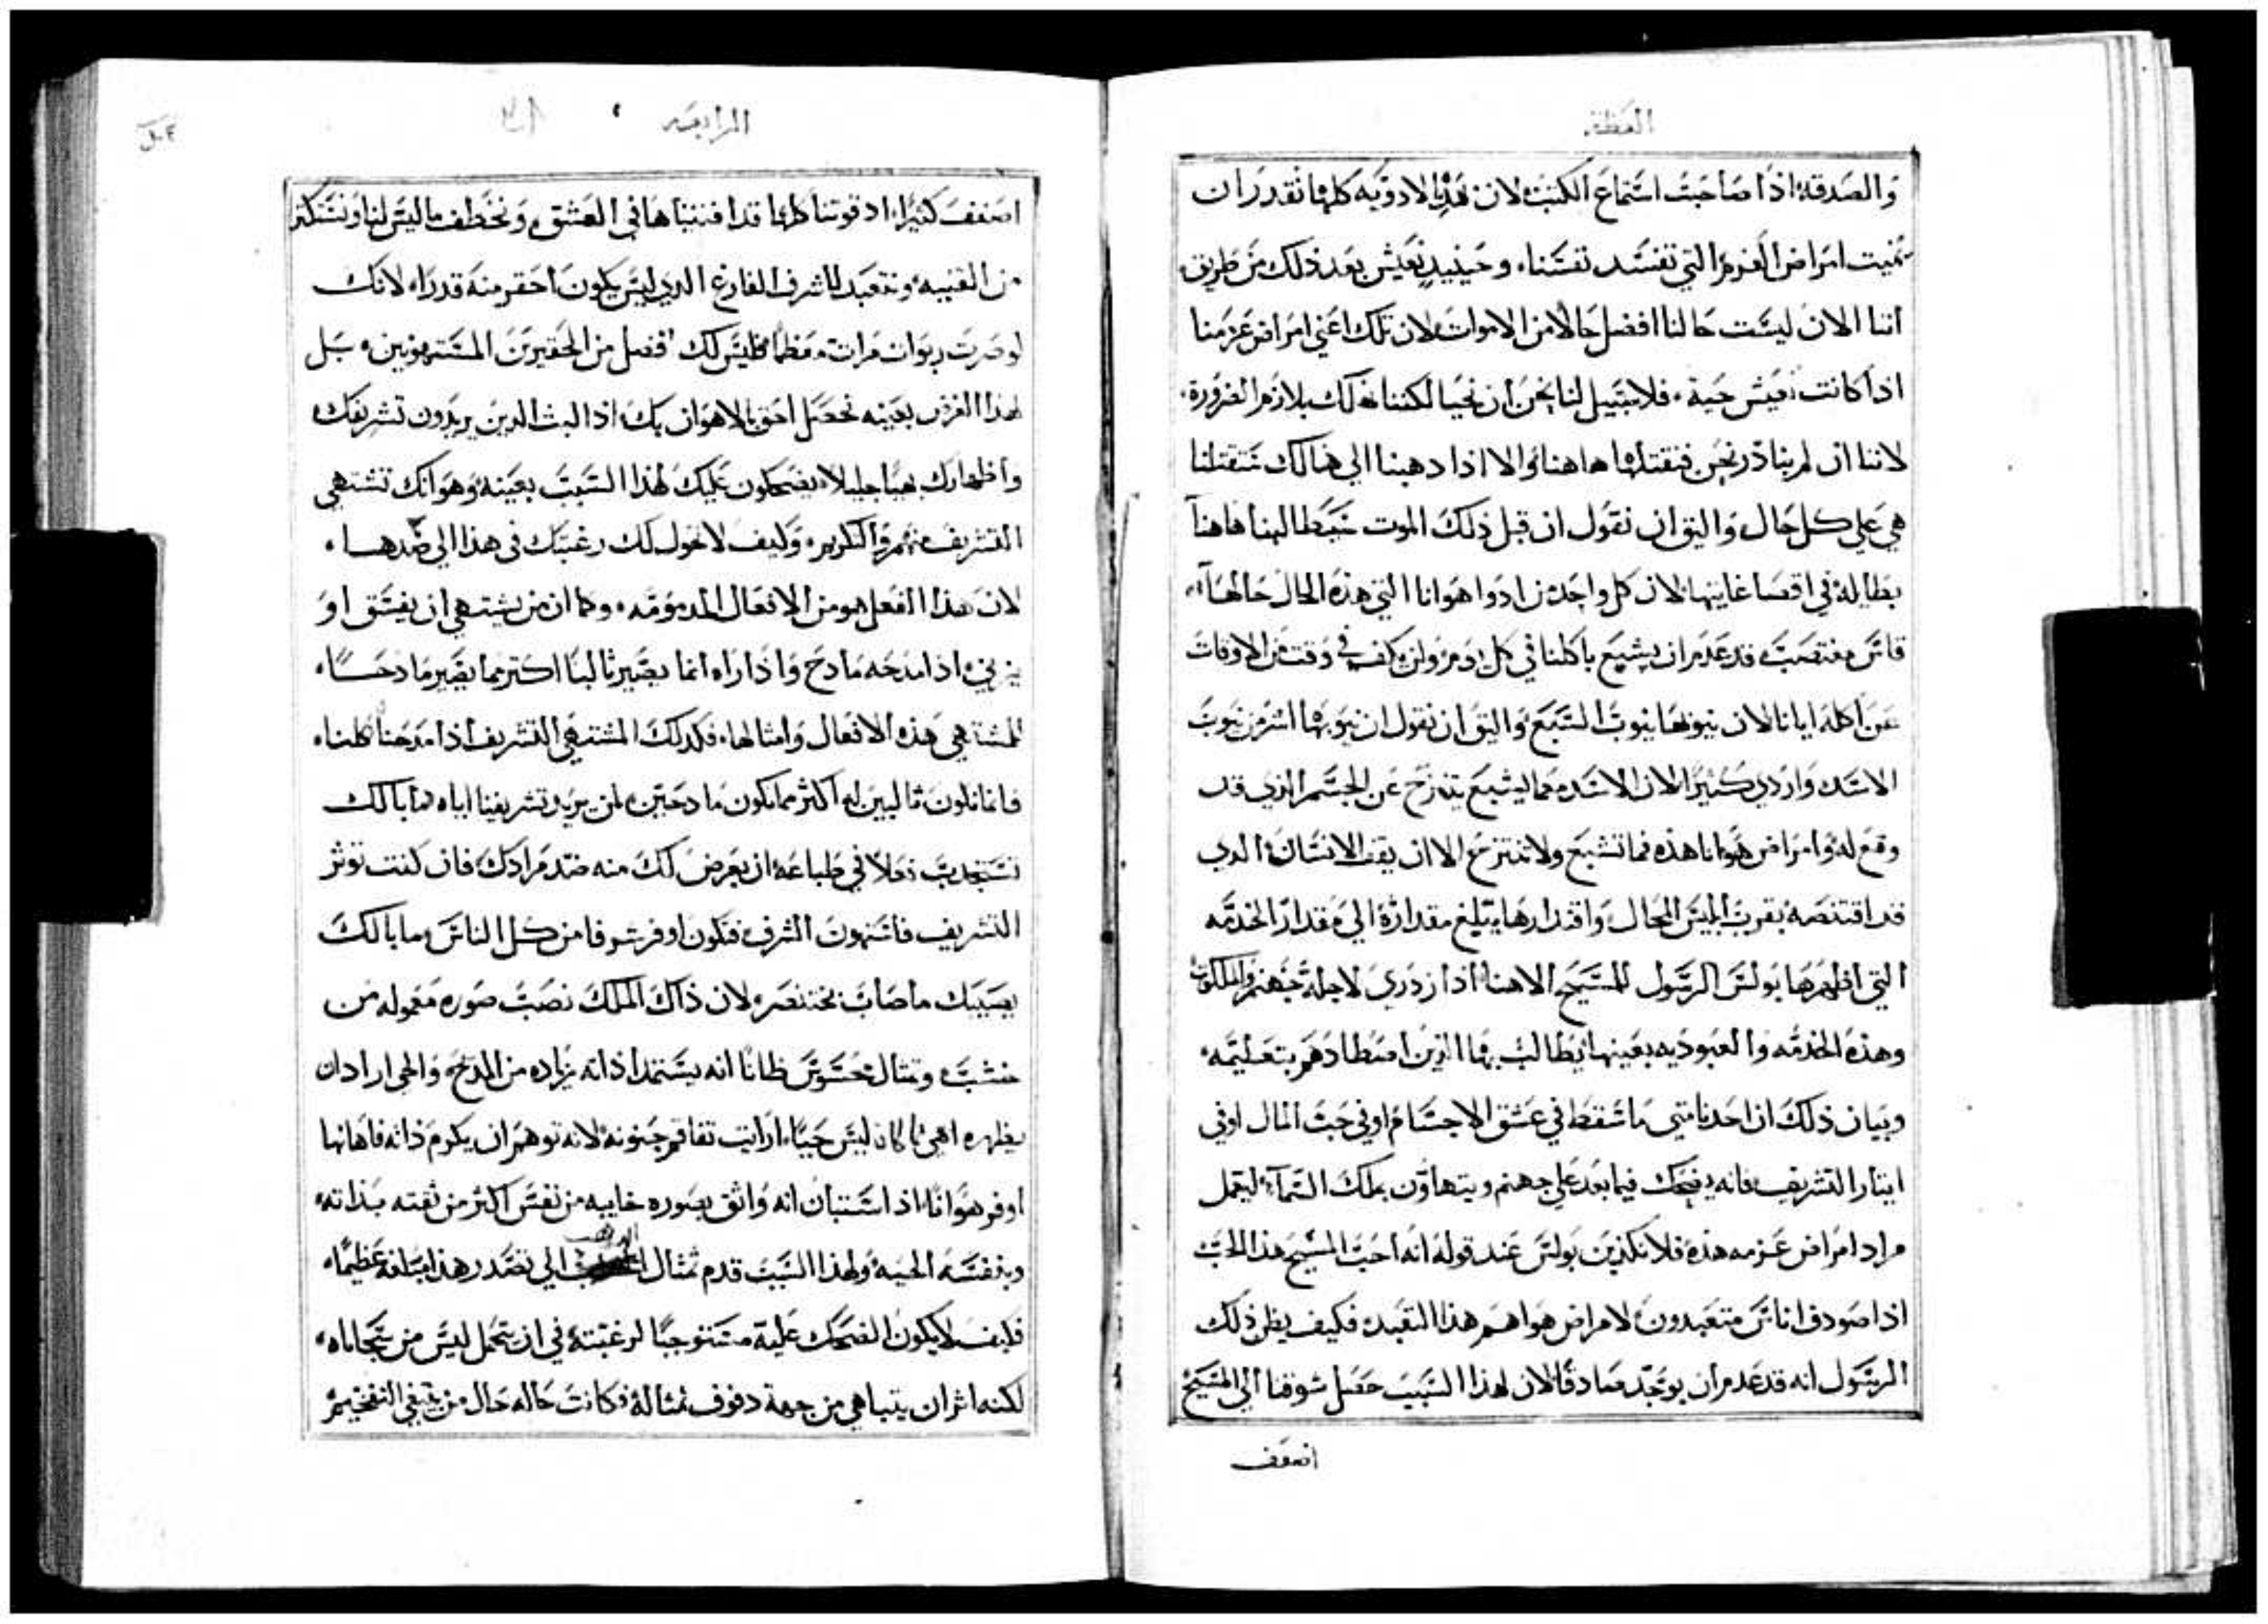 العظة
والصدقة اذا صاحبت استماع الكتب لان هذه الادويه كلها تقدر ان
تميت امراض العزم التي تفسد نفسنا، وحينيذ نعيش بعد ذلك من طريق
اننا الان ليست حالنا افضل حالا من الاموات لان تلك اعني امراض عزمنا
اذا كانت تعيش حية، فلا سبيل لنا نحن ان نحيا لكننا نهلك بلازم الضرورة،
لاننا ان لم نبادر نحن فنقتلها هاهنا والا اذا دهبنا الي هنالك ستقتلنا
هي علي كل حال واليق ان نقول ان قبل ذلك الموت ستطالبنا هاهنا
بطايله في اقصا غايتها لان كل واحد من ادوا هوانا التي هذه الحال حالها
قاس مغتصب قد عدم ان يشبع باكلنا في كل يوم ولن يكف في وقت من الاوقات
عن اكله ايانا لان نيوبها نيوب السبع واليق ان نقول ان نيوبها اشر من نيوب
الاسد واردي كثيرا لان الاسد مهما ليشبع يتنزح عن الجسم الذي قد
وقع له وامراض هوانا هذه فما تشبع ولا تنتزح الا ان يقف الانسان الدي
قد اقتنصه بقرب ابليس المحال واقتدارها يبلغ مقداره الي مقدار الخدمه
التي اظهرها بولس الرسول للمسيح الاهنا اذ ازدري لاجله جهنم والملكوت
وهذه الخدمه والعبوديه بعينها يطالب بها الذين اصطادهم بتعليمه
وبيان ذلك ان احدنا متي ما سقط في عشق الاجسام او في حب المال او في
ايثار التشريف فانه يضحك فيما بعد علي جهنم ويتهاون بملك السمآء ليعمل
مراد امراض عزمه هذه فلا نكذبن بولس عند قوله انه احب المسيح هذا الحب
اذا صودف اناس متعبدون لامراض هواهم هذا التعبد فكيف يظن ذلك
الرسول انه قد عدم ان يوجد صادقا لان لهذا السبب حصل شوقنا الي المسيح
اضعف
الرابعه
اضعف كثيرا، اذ قوتنا كلها قد افنيناها في العشق، ونخطف ما ليس لنا ونستكثر
من القنيه ونتعبد للشرف الفارغ الدي ليس يكون احقر منه قدرا، لانك
لو صرت ربوات مرات معظما فليس لك افضل من الحقيرين المستهونين، بل
لهذا الغرض بعينه تحصل احق بالاهوان بك اذ البث الدين يريدون تشريفك
واظهارك بهيا جليلا، يضحكون عليك لهذا السبب بعينه وهو انك تشتهي
التشريف منهم والتكريم، وكيف لا تحول لك رغبتك في هذا الي ضدها،
لان هذا الفعل هو من الافعال المدمومه، وكما ان من يشتهي ان يفسق او
يزني، اذا مدحه مادح واذا راه انما يصير ثالبا اكتر مما يصير مادحا
لمشتهي هذه الافعال وامثالها، فكدلك المشتهي التشريف اذا مدحناه كلنا،
فانما نكون ثالبين له اكثر مما نكون مادحين، لمن يريد تشريفنا اياه فما بالك
تستجدب فعلا في طباعه ان يعرض لك منه ضد مرادك فان كنت توثر
التشريف فاستهون الشرف فتكون اوفر شرفا من كل الناس ما بالك
يصيبك ما صاب بختنصر، لان ذاك الملك نصب صوره معموله من
خشب، وتمثال محسوس ظانا انه يستمد اذاته زياده من المدح، والحي اراد ان
يظهره اهي ما كان ليس حيا، ارايت تفاقم جنونه لانه توهم ان يكرم ذاته فاهانها
اوفر هوانا، اذ استبان انه واثق بصوره خايبه من نفس اكثر من ثقته بذاته
وبنفسه الحيه ولهذا السبب قدم تمثال الدهب الي تصدر هذا مسافه عظيما،
فكيف لا يكون الضحك عليه مستوجبا لرغبته في ان يتجمل ليس من سجاياه،
لكنه اثر ان يتباهي من جهة دفوف تمثاله فكانت حاله حال من يبتغي التفخيم